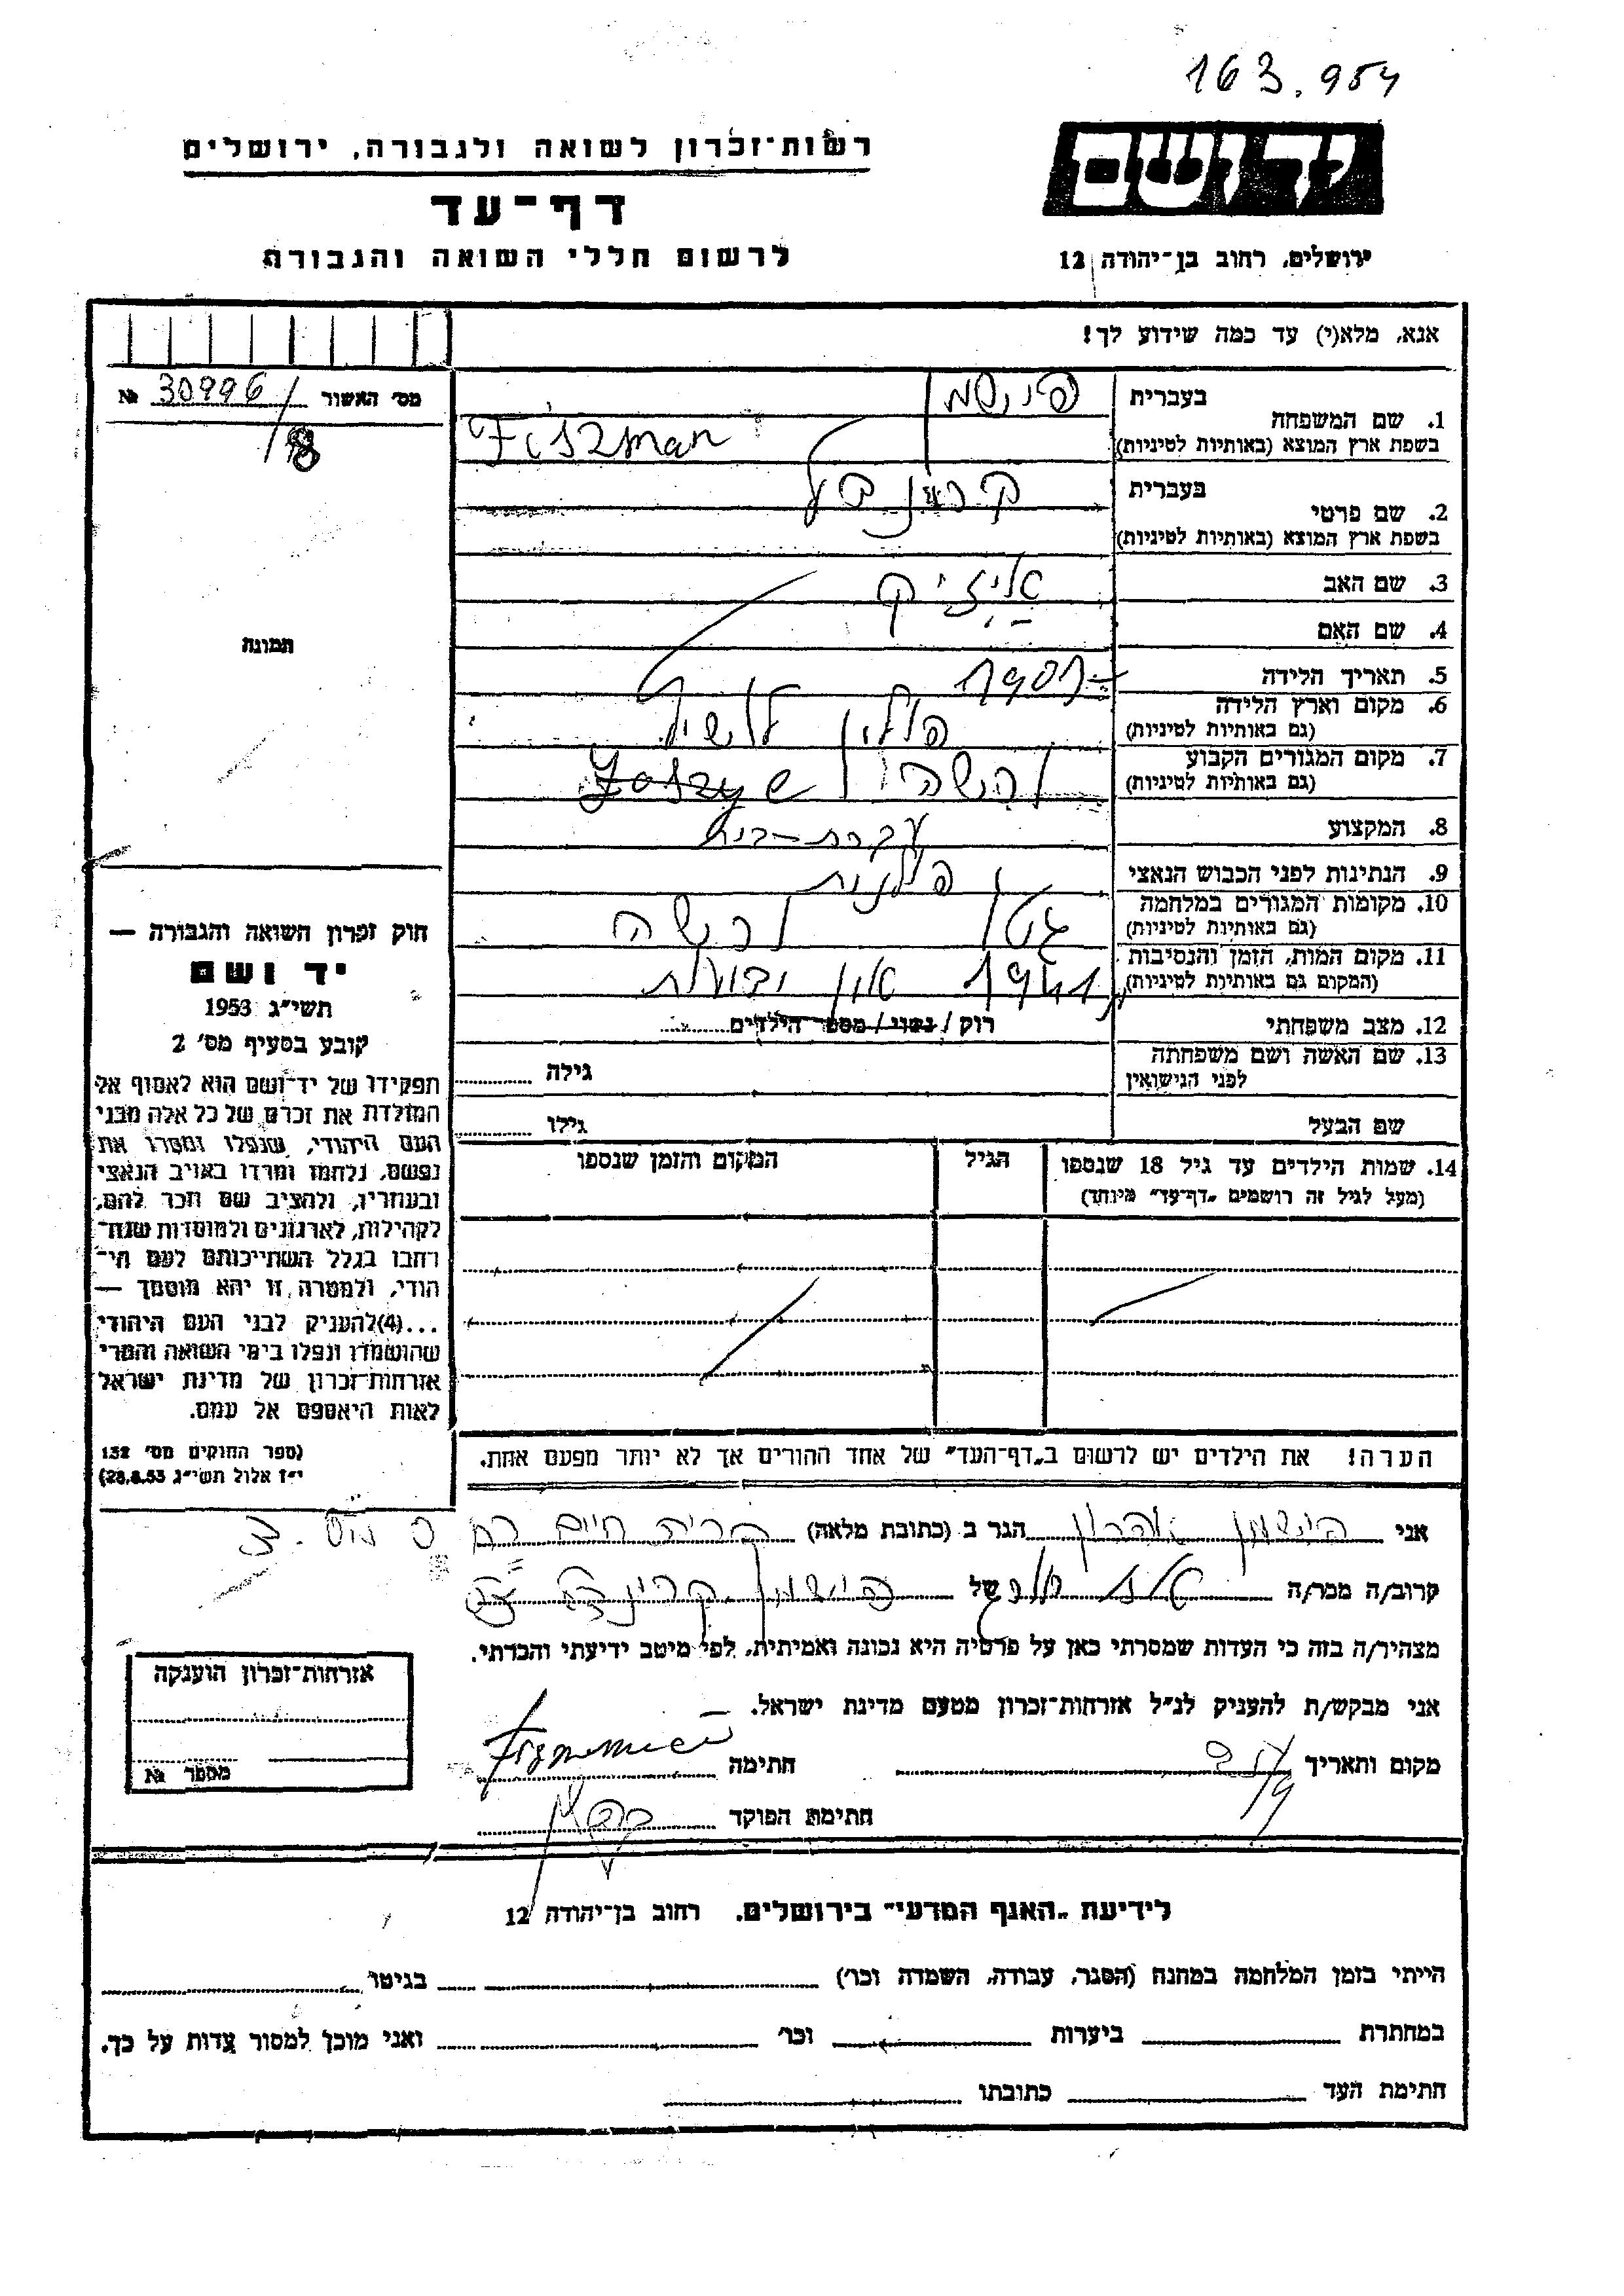 163.954
יד ושם
רשות־זכרון לשואה ולגבורה, ירושלים
דף־עד
לרשום חללי השואה והגבורה
ירושלים, רחוב בן־יהודה 12
אנא, מלא(י) עד כמה שידוע לך!
מס׳ האשור № 30996/
8
תמונה
1. שם המשפחה
בעברית פישמן
בשפת ארץ המוצא (באותיות לטיניות) Fiszman
2. שם פרטי
בעברית
בשפת ארץ המוצא (באותיות לטיניות)
3. שם האב אייזיק
4. שם האם
5. תאריך הלידה 1901
6. מקום וארץ הלידה פולין
(גם באותיות לטיניות)
7. מקום המגורים הקבוע ורשה
(גם באותיות לטיניות)
8. המקצוע עקרת-בית
9. הנתינות לפני הכבוש הנאצי פולנית
10. מקומות המגורים במלחמה גטו ורשה
(גם באותיות לטיניות)
11. מקום המות, הזמן והנסיבות 1941
(המקום גם באותיות לטיניות)
12. מצב משפחתי רוק / נשוי / מספר הילדים
13. שם האשה ושם משפחתה
לפני הנישואין גילה
שם הבעל גילו
14. שמות הילדים עד גיל 18 שנספו הגיל המקום והזמן שנספו
(מעל לגיל זה רושמים „דף־עד״ מיוחד)
הערה! את הילדים יש לרשום ב„דף־העד״ של אחד ההורים אך לא יותר מפעם אחת.
חוק זכרון השואה והגבורה —
יד ושם
תשי״ג 1953
קובע בסעיף מס׳ 2
תפקידו של יד־ושם הוא לאסוף אל
המולדת את זכרם של כל אלה מבני
העם היהודי, שנפלו ומסרו את
נפשם, נלחמו ומרדו באויב הנאצי
ובעוזריו, ולהציב שם וזכר להם,
לקהילות, לארגונים ולמוסדות שנח־
רבו בגלל השתייכותם לעם הי־
הודי, ולמטרה זו יהא מוסמך —
...(4) להעניק לבני העם היהודי
שהושמדו ונפלו בימי השואה והמרי
אזרחות־זכרון של מדינת ישראל
לאות היאספם אל עמם.
(ספר החוקים מס׳ 132
י״ז אלול תשי״ג 28.8.53)
אני פישמן אהרון הגר ב (כתובת מלאה) קרית חיים
קרוב/ה מכר/ה של פישמן
מצהיר/ה בזה כי העדות שמסרתי כאן על פרטיה היא נכונה ואמיתית, לפי מיטב ידיעתי והכרתי.
אני מבקש/ת להעניק לנ״ל אזרחות־זכרון מטעם מדינת ישראל.
מקום ותאריך חתימה
חתימת הפוקד
אזרחות־זכרון הוענקה
מספר №
לידיעת „האגף המדעי״ בירושלים, רחוב בן־יהודה 12
הייתי בזמן המלחמה במחנה (הסגר, עבודה, השמדה וכו׳) בגיטו
במחתרת ביערות וכו׳ ואני מוכן למסור עדות על כך.
חתימת העד כתובתו